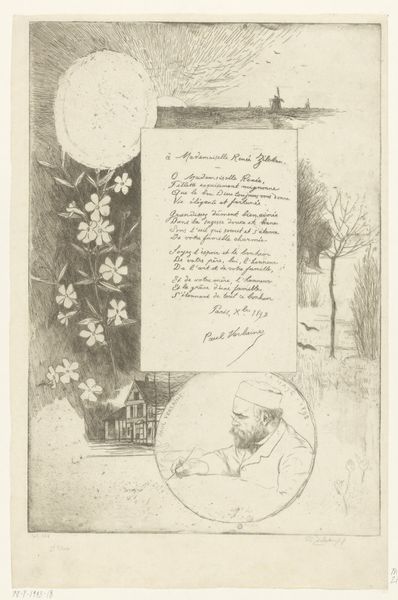 à Mademoiselle Renée Zilcken.
O Mademoiselle Renée,
Fillette exquisement mignonne
Que le bon Dieu toujours vous donne
Vie élégante et fortunée.
Grandissez dûment bien aimée
Dans la sagesse douce et bonne
Sous l'œil qui sourit et s'étonne
De votre famille charmée.
Soyez l'espoir et le bonheur
De votre père, lui, l'honneur
De l'art et de votre famille,
Et de votre mère, l'honneur
Et la grâce d'une famille
S'étonnant de tout ce bonheur
Paris, Xbre 1892
Paul Verlaine